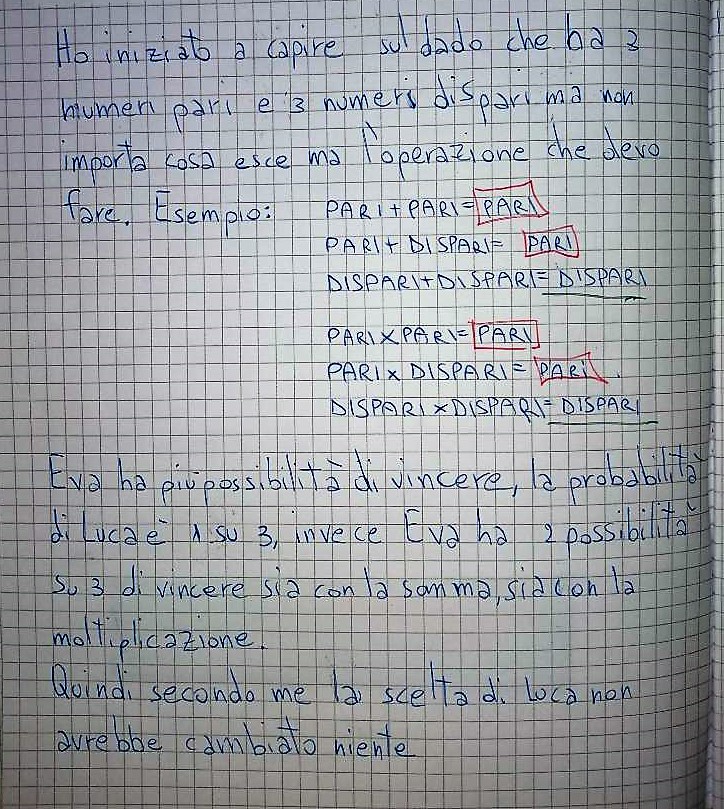 Ho iniziato a capire sul dado che ha 3
numeri pari e 3 numeri dispari ma non
importa cosa esce ma l'operazione che devo
fare. Esempio: PARI + PARI = PARI
PARI + DISPARI = PARI
DISPARI + DISPARI = DISPARI
PARI X PARI = PARI
PARI X DISPARI = PARI.
DISPARI X DISPARI = DISPARI
Eva ha più possibilità di vincere, la probabilità
di Luca è 1 su 3, invece Eva ha 2 possibilità
su 3 di vincere sia con la somma, sia con la
moltiplicazione.
Quindi secondo me la scelta di Luca non
avrebbe cambiato niente